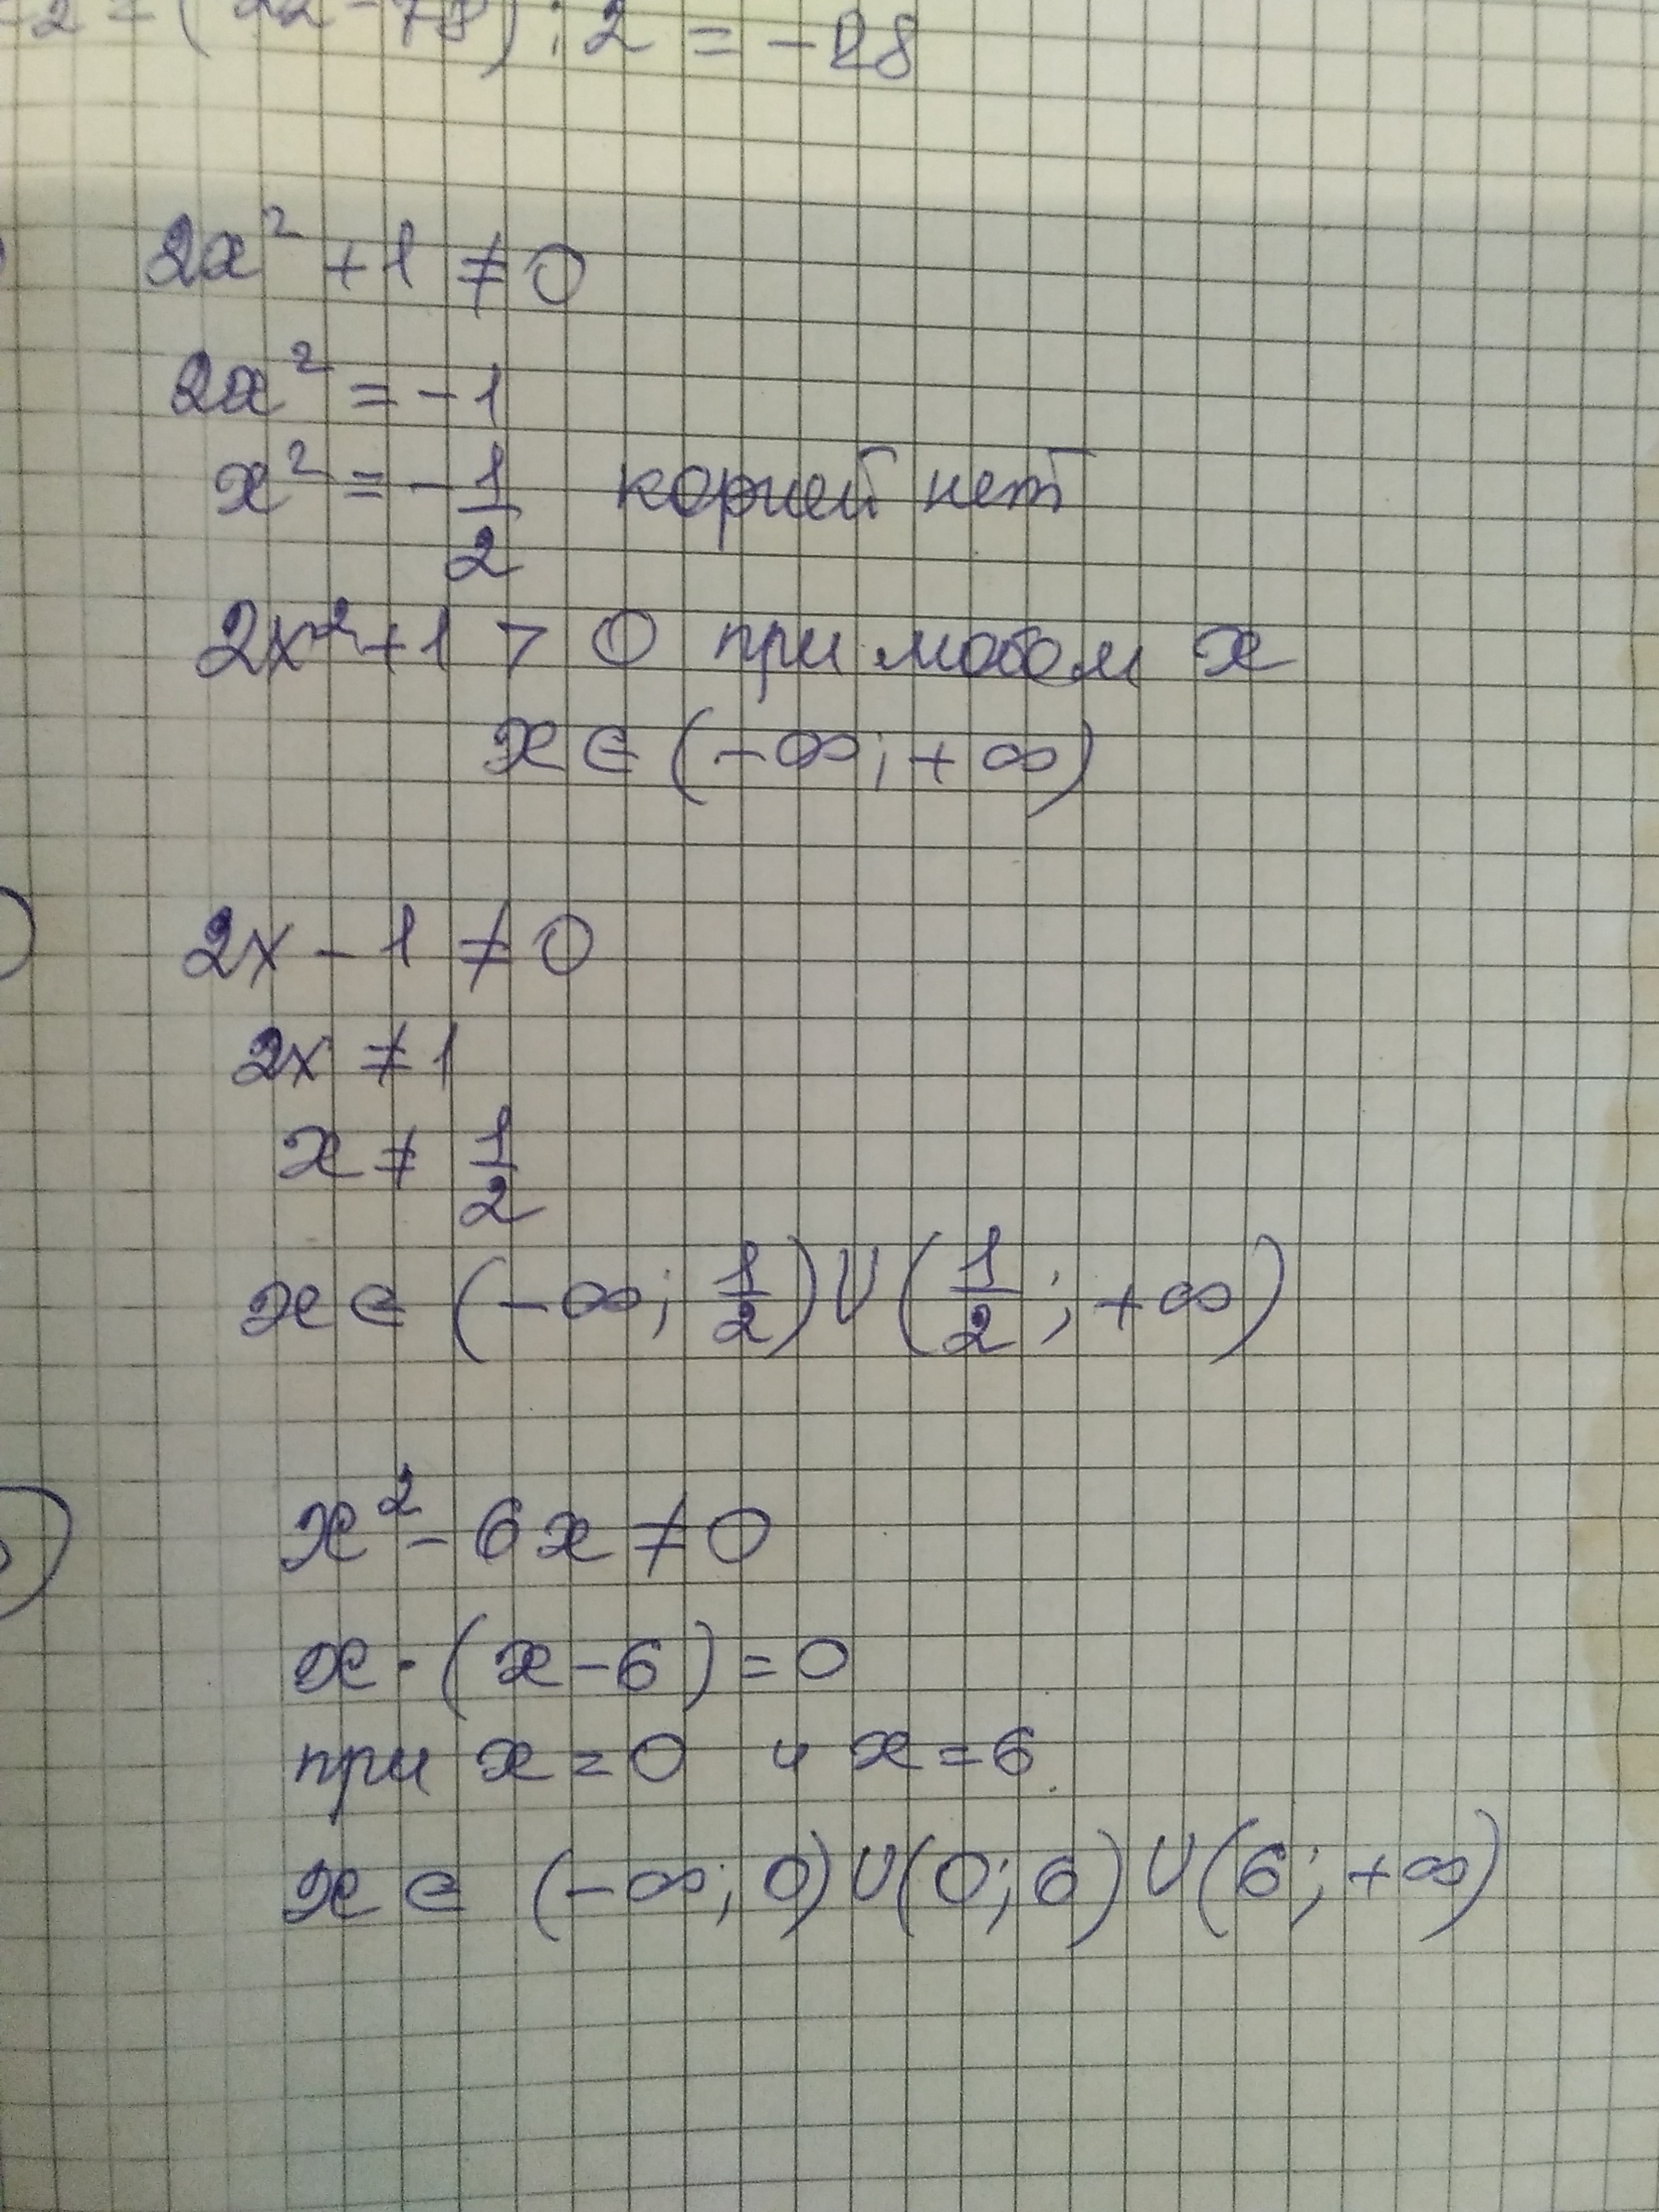 2 = (22-78) : 2 = -28
2x² + 1 ≠ 0
2x² = -1
x² = -1/2 корней нет
2x² + 1 > 0 при любом x
x ∈ (-∞; +∞)
2x - 1 ≠ 0
2x ≠ 1
x ≠ 1/2
x ∈ (-∞; 1/2) ∪ (1/2; +∞)
x² - 6x ≠ 0
x · (x - 6) = 0
при x = 0 и x = 6
x ∈ (-∞; 0) ∪ (0; 6) ∪ (6; +∞)